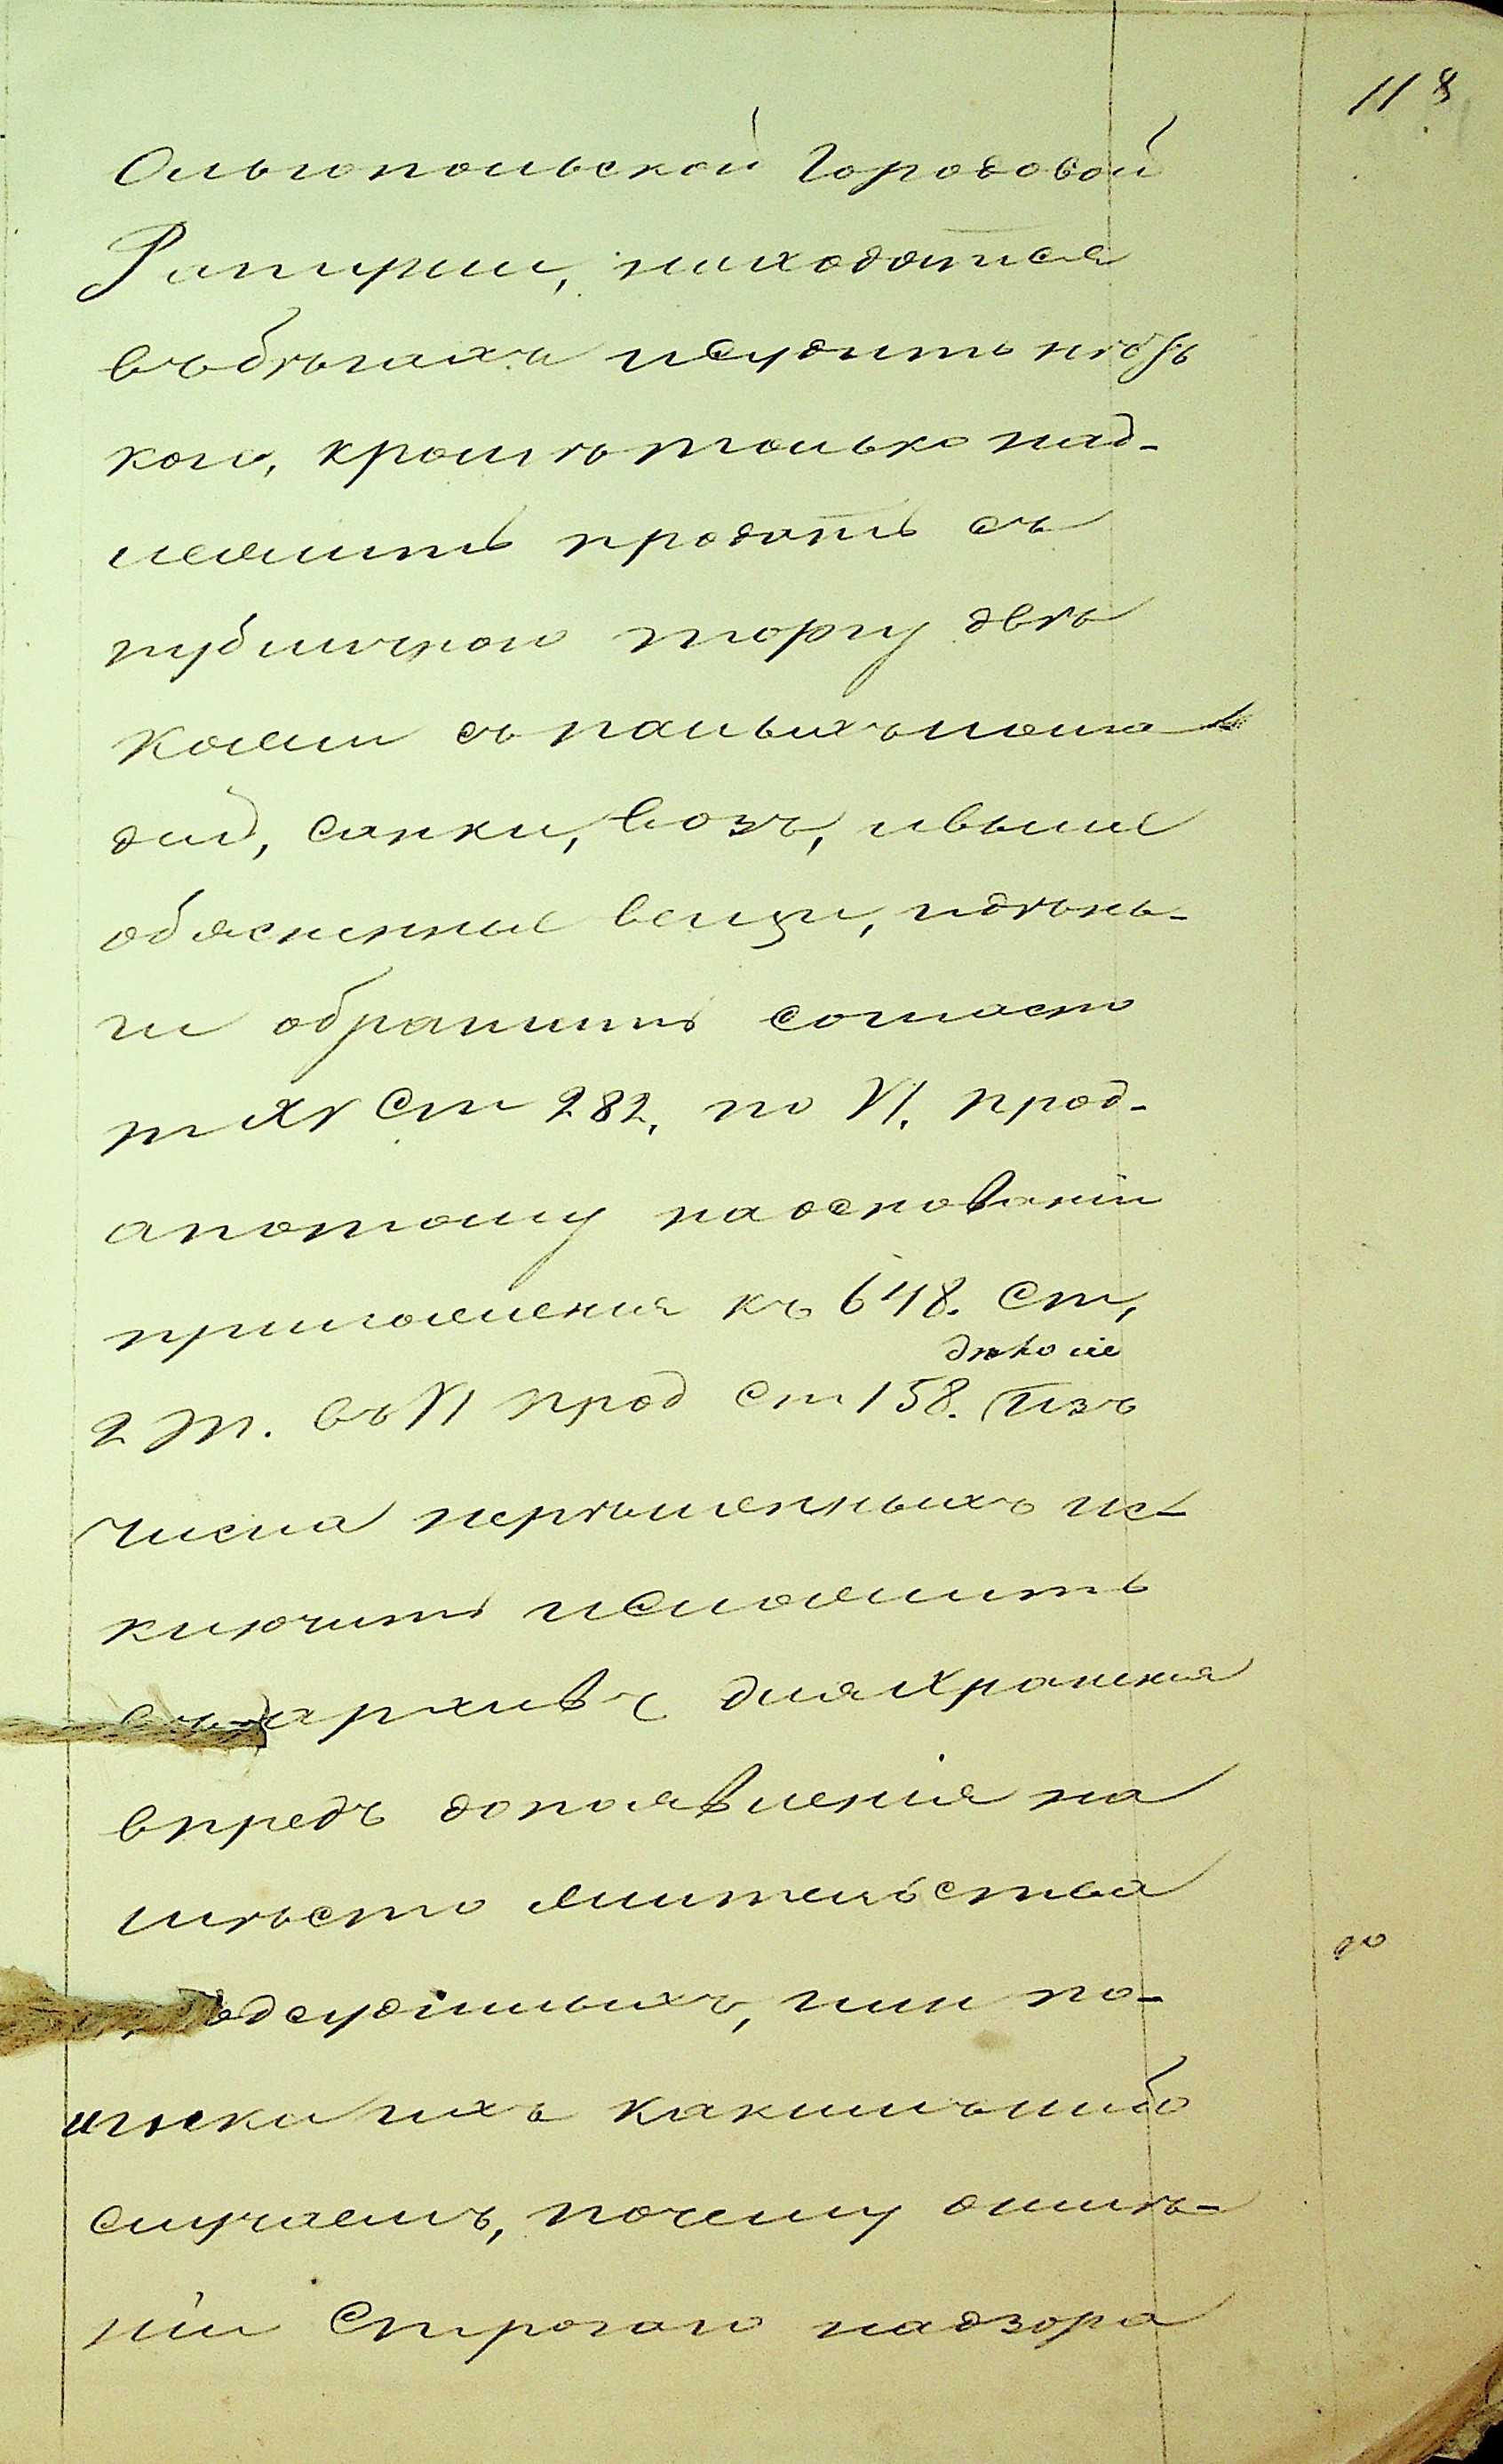 118
Ольгопольской Городовой
Ратуши, находятся
въ бѣгахъ и судить нѣ
кого, кромѣ только над-
лежитъ продать съ
публичного торгу двѣ
кожи съ палыхъ лоша
дей, санки, возъ, и выше
объясненные вещи, и день-
ги обратить согласно
т XV Ст 282. по VI. прод.
а потому на основаніи
приложенія къ 648. Ст,
2 т. въ VI прод Ст 158. дѣло сіе изъ
числа нерѣшенныхъ ис-
ключить и сложить
въ архивъ для храненія
впредь до появленія на
мѣсто жительства
подсудимыхъ, или по-
имки ихъ какимъ либо
случаемъ, почему о имѣ-
ніи Строгаго надзора
до